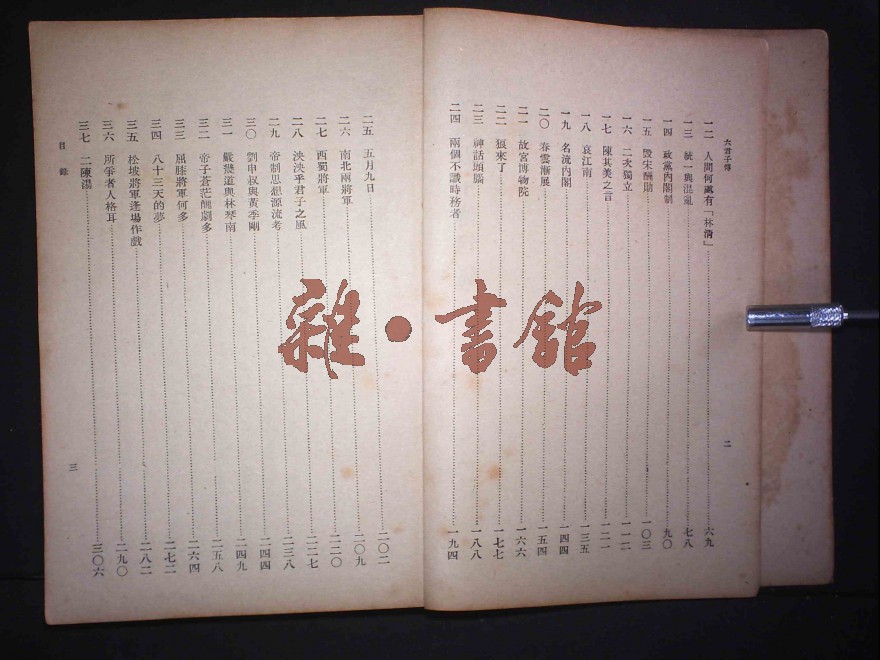 六君子傳
一二 人間何處有「林清」 六九
一三 統一與混亂 七八
一四 政黨內閣制 九〇
一五 毀宋酬勛 一〇三
一六 二次獨立 一一二
一七 陳其美之言 一二一
一八 哀江南 一三五
一九 名流內閣 一四四
二〇 春雲漸展 一五四
二一 故宮博物院 一六六
二二 狼來了 一七七
二三 神話頭腦 一八八
二四 兩個不識時務者 一九四
二
二五 五月九日 二〇二
二六 南北兩將軍 二〇九
二七 西蜀將軍 二二〇
二八 泱泱乎君子之風 二二七
二九 帝制思想源流考 二三八
三〇 劉申叔與黃季剛 二四四
三一 嚴幾道與林琴南 二四九
三二 帝子蒼茫醜劇多 二五八
三三 屈膝將軍何多 二六四
三四 八十三天的夢 二七二
三五 松坡將軍逢場作戲 二八二
三六 所爭者人格耳 二九〇
三七 二陳湯 三〇六
目錄
三
雜·書館